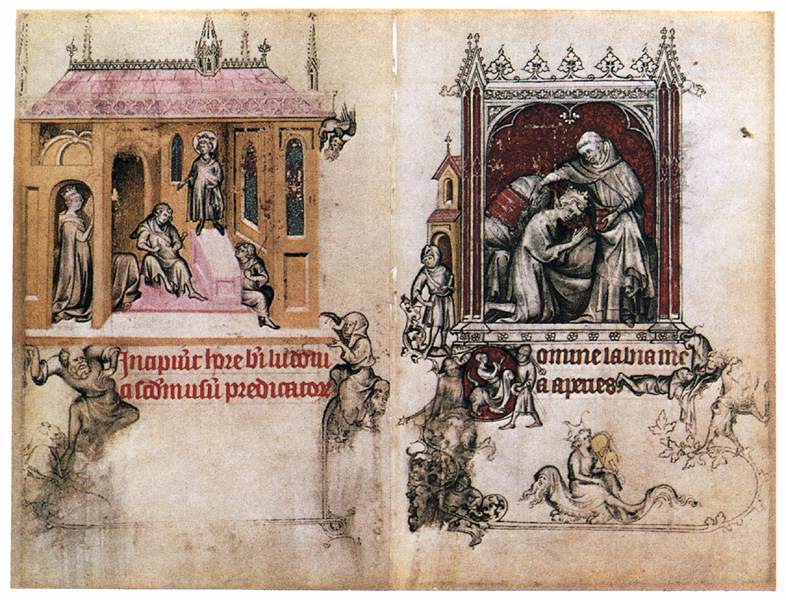 Incipiūt hore bī ludoui
ci scdm usū predicatoꝝ
Domine labia me
a aperies